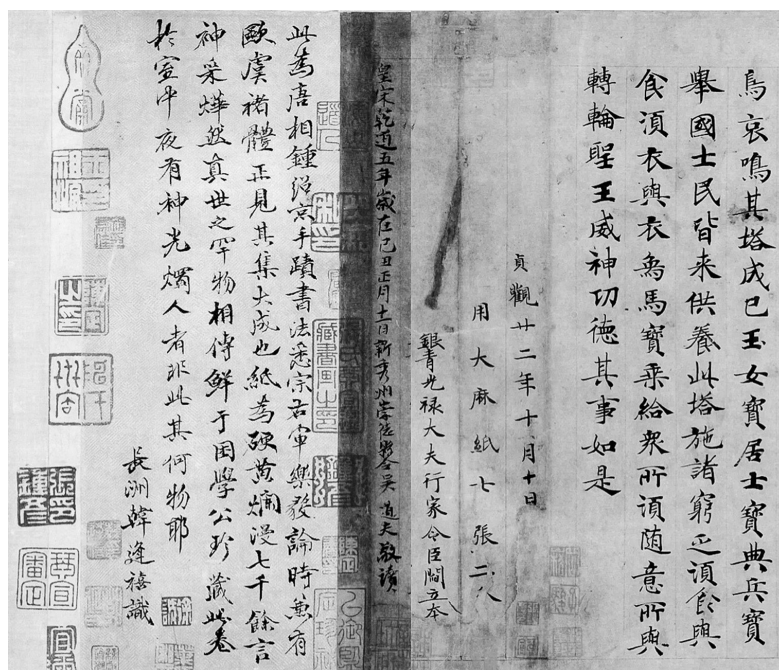 鳥哀鳴其塔成已玉女寶居士寶典兵寶
舉國士民皆来供養此塔施諸窮乏湏食與
食湏衣與衣象馬寶乗給衆所湏随意所與
轉輪聖王威神功德其事如是
貞觀廿二年十月十日
用大麻紙七張二分
銀青光禄大夫行家令臣閻立本
皇宋乾道五年歲在己丑正月十一日新秀州崇德縣令吴道夫敬讀
此為唐相鍾紹京手蹟書法悉宗右軍樂毅論時兼有
歐虞褚體正見其集大成也紙為硬黄爛漫七千餘言
神采燁然真世之罕物相傳鮮于困學公珍藏此卷
於室中夜有神光燭人者非此其何物耶
長洲韓逢禧識